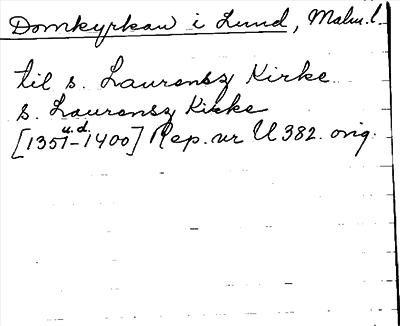 Domkyrkan i Lund, Malm.l.
til s. Laurensz Kirke
s. Laurensz Kirke
u.d.
[1351-1400] Rep. nr U 382. orig.